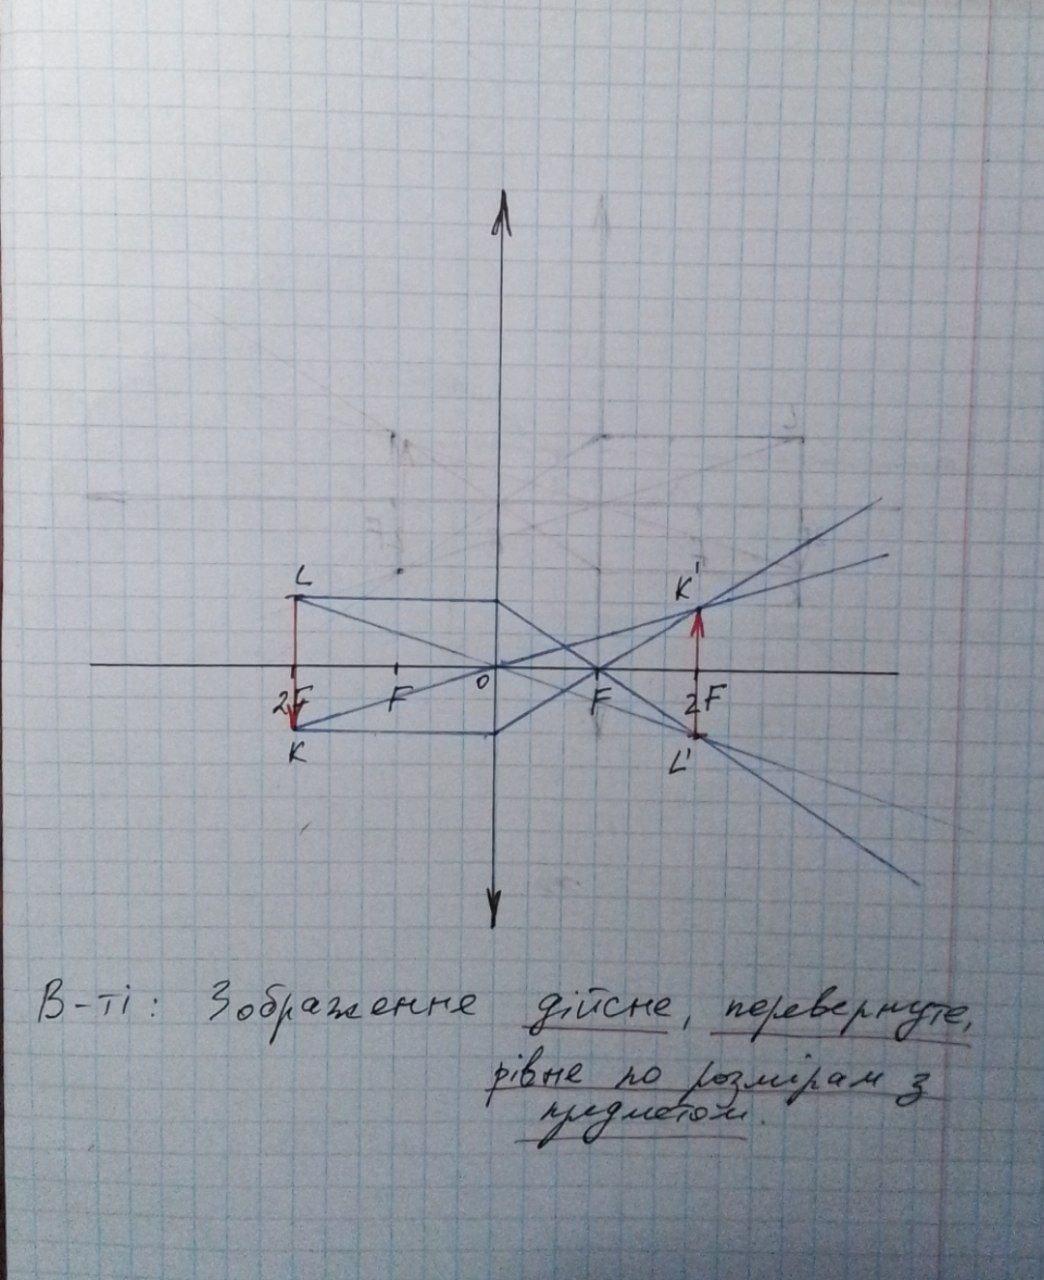 L
K'
O
2F F F 2F
K
L'
В-ті: Зображення дійсне, перевернуте,
рівне по розмірам з
предметом.